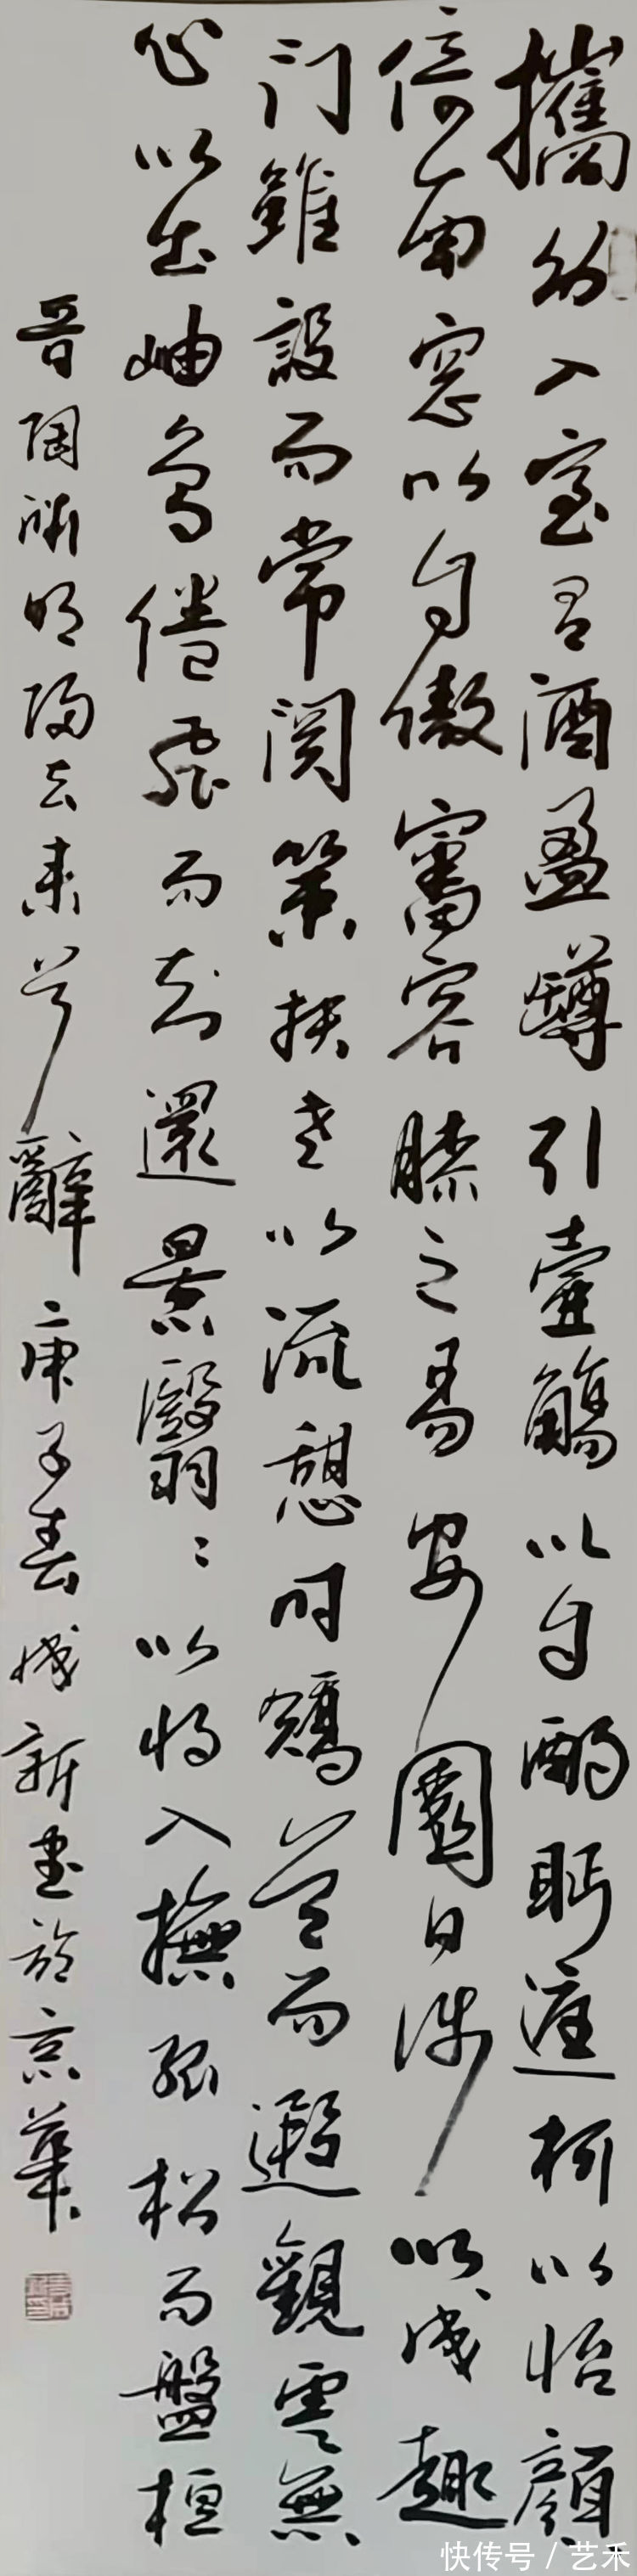 攜幼入室有酒盈罇引壺觴以自酌眄庭柯以怡顏
倚南窓以自傲審容膝之易安園日涉以成趣
门雖設而常関策扶老以流憩时矯首而遐觀雲無
心以出岫鳥倦飛而知還景翳〻以將入撫孤松而盤桓
晉陶淵明歸去来兮辭庚子春新書於京華
快传号 / 艺禾